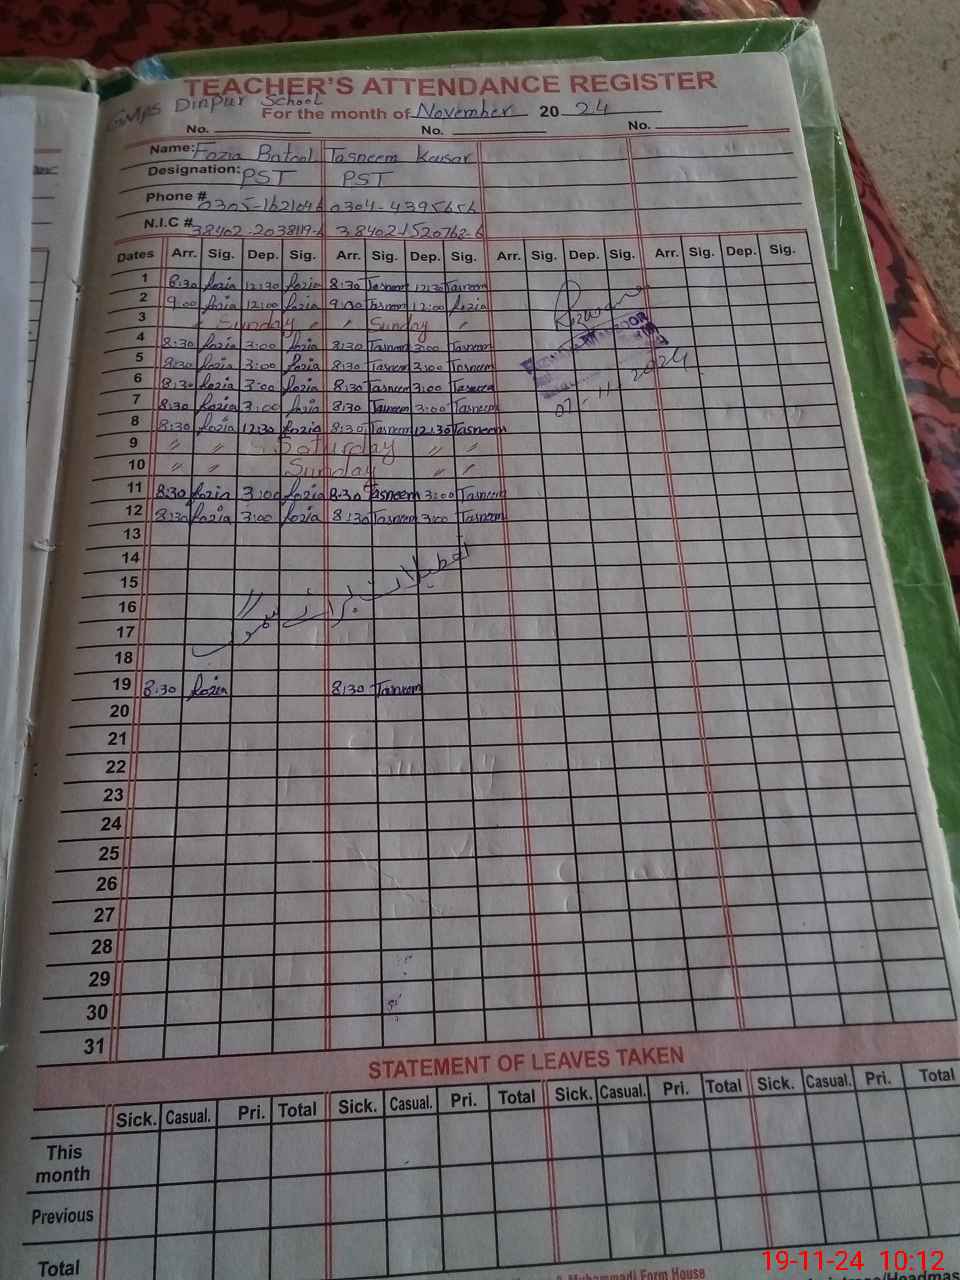 TEACHER'S ATTENDANCE REGISTER
GMPS Dinpur School
For the month of November 20 24
No. No. No.
Name: Fozia Batool Tasneem Kausar
Designation: PST PST
Phone # 0305-1621046 0304-4395656
N.I.C # 38402-2038119-6 38402-1520762-6
Dates Arr. Sig. Dep. Sig. Arr. Sig. Dep. Sig. Arr. Sig. Dep. Sig. Arr. Sig. Dep. Sig.
1 8:30 fozia 12:30 fozia 8:30 Tasneem 12:30 Tasneem
2 9:00 fozia 12:00 fozia 9:00 Tasneem 12:00 fozia
3 〃 Sunday 〃 〃 Sunday 〃
4 8:30 fozia 3:00 fozia 8:30 Tasneem 3:00 Tasneem
5 8:30 fozia 3:00 fozia 8:30 Tasneem 3:00 Tasneem
6 8:30 fozia 3:00 fozia 8:30 Tasneem 3:00 Tasneem
7 8:30 fozia 3:00 fozia 8:30 Tasneem 3:00 Tasneem
8 8:30 fozia 12:30 fozia 8:30 Tasneem 12:30 Tasneem
9 〃 〃 Saturday 〃 〃
10 〃 〃 Sunday 〃 〃
11 8:30 fozia 3:00 fozia 8:30 Tasneem 3:00 Tasneem
12 8:30 fozia 3:00 fozia 8:30 Tasneem 3:00 Tasneem
Rizwana
07-11-2024
13
14
15
تعطیلات برائے سموگ
16
17
18
19 8:30 fozia 8:30 Tasneem
20
21
22
23
24
25
26
27
28
29
30
31
STATEMENT OF LEAVES TAKEN
Sick. Casual. Pri. Total Sick. Casual. Pri. Total Sick. Casual. Pri. Total Sick. Casual. Pri. Total
This month
Previous
Total
Muhammadi Form House
19-11-24 10:12